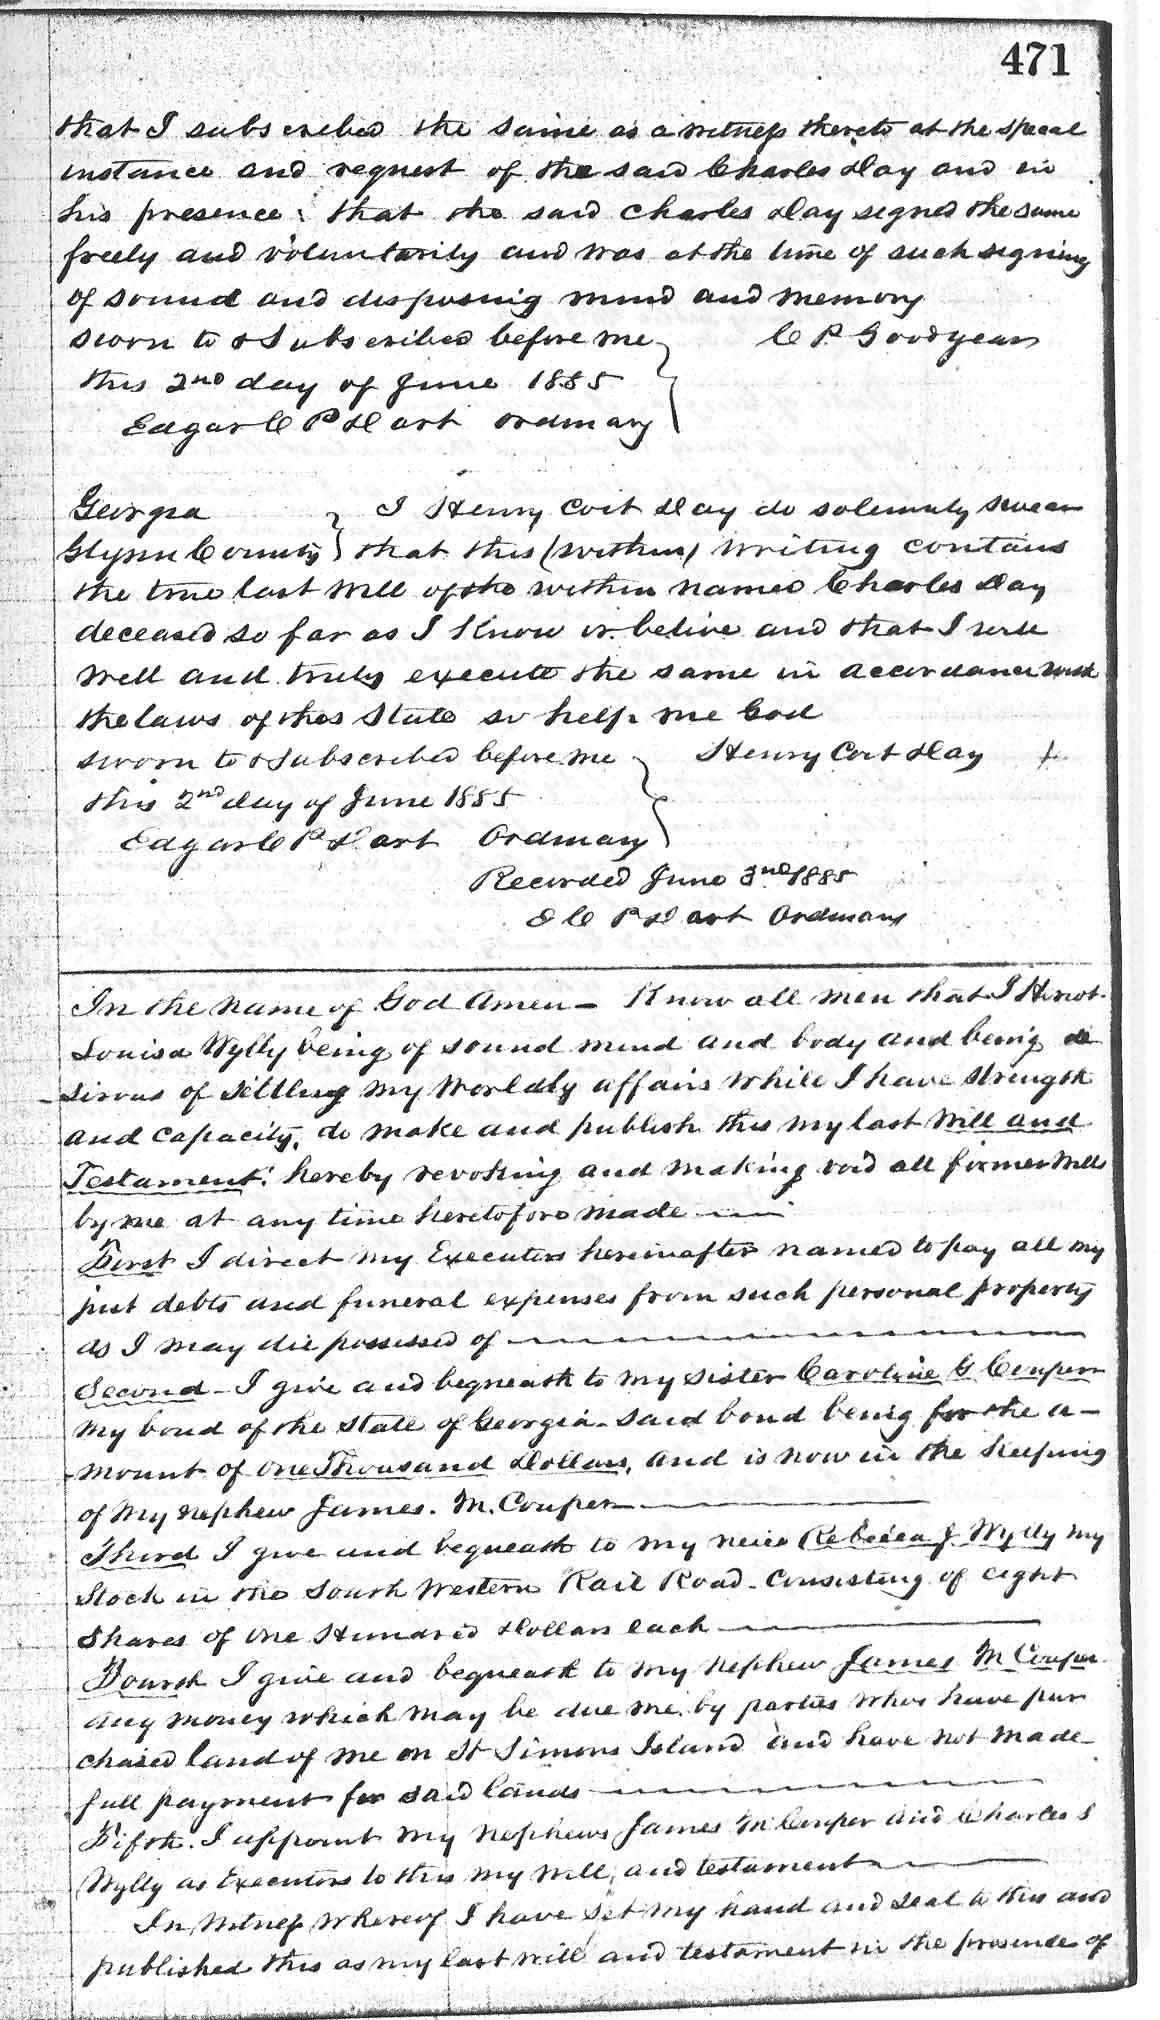 471
that I subscribed the same as a witness thereto at the special
instance and request of the said Charles Day and in
his presence; that the said Charles Day signed the same
freely and voluntarily and was at the time of such signing
of sound and disposing mind and memory
sworn to & Subscribed before me C P Goodyear
this 2nd day of June 1885
Edgar C P Dart Ordinary
Georgia I Henry Coit Day do solemnly swear
Glynn County that this (within) writing contains
the true last will of the within named Charles Day
deceased so far as I Know or belive and that I will
well and truly execute the same in accordance with
the laws of this State so help me God
sworn to & Subscribed before me Henry Coit Day
this 2nd day of June 1885
Edgar C P Dart Ordinary
Recorded June 3rd 1885
E C P Dart Ordinary
In the name of God Amen — Know all men that I Heriot
Louisa Wylly being of sound mind and body and being de
sirous of settling my worldly affairs while I have strength
and capacity, do make and publish this my last will and
Testament: hereby revoking and making void all former wills
by me at any time heretofore made ——
First I direct my Executors hereinafter named to pay all my
just debts and funeral expenses from such personal property
as I may die possessed of ——
Second – I give and bequeath to my sister Caroline G Couper
my bond of the State of Georgia – said bond being for the a–
mount of One Thousand Dollars, and is now in the keeping
of my nephew James. M. Couper ——
Third I give and bequeath to my neice Rebecca J Wylly my
Stock in the South Western Rail Road – Consisting of eight
Shares of One Hundred Dollars each ——
Fourth I give and bequeath to my nephew James M Couper
any money which may be due me by parties who have pur
chased land of me on St Simons Island and have not made
full payment for said lands ——
Fifth. I appoint my nephews James M Couper and Charles S
Wylly as Executors to this my will, and testament ——
In Witness whereof I have set my hand and seal to this and
published this as my last will and testament in the presence of